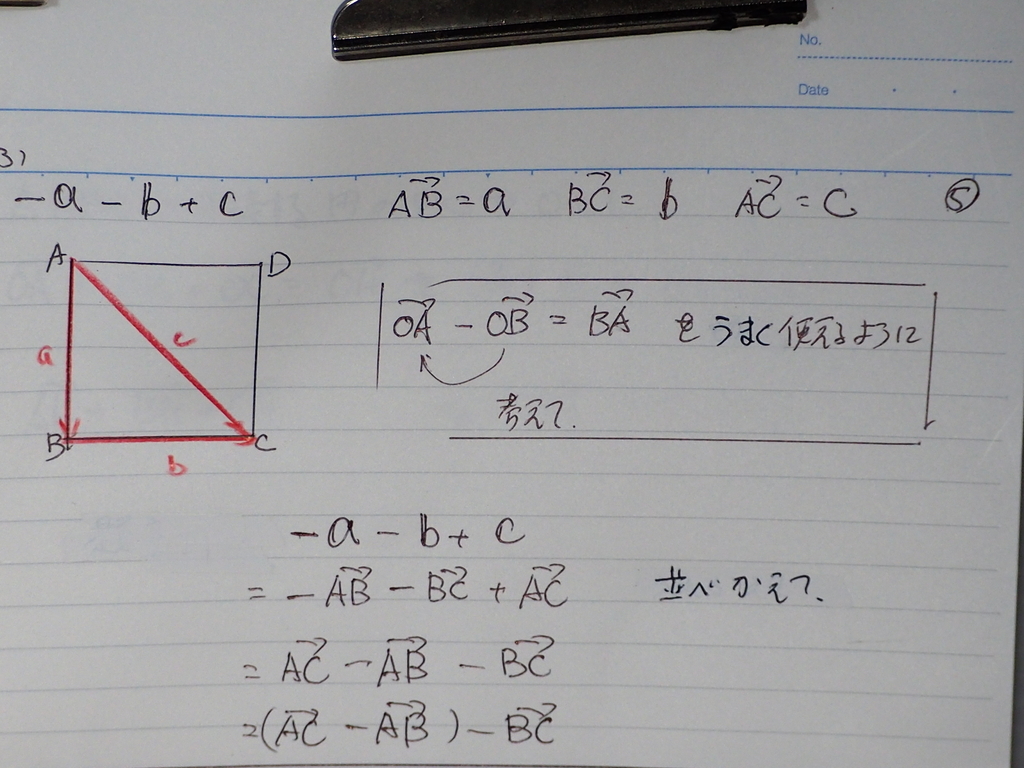 No.
Date
3)
-a - b + c AB→ = a BC→ = b AC→ = c ⑤
A D
a c
B C
b
OA→ - OB→ = BA→ をうまく使えるように
考えて.
-a - b + c
= -AB→ - BC→ + AC→ 並べかえて、
= AC→ - AB→ - BC→
= (AC→ - AB→) - BC→